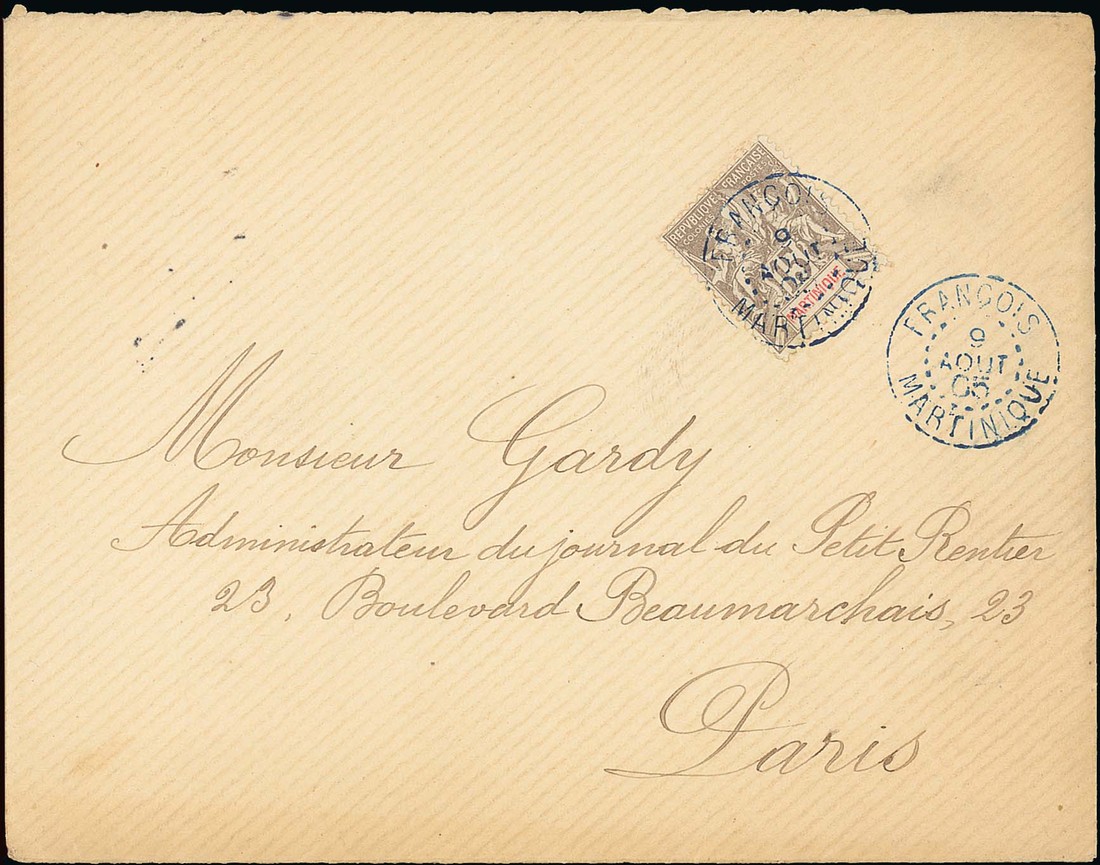 REPVBLIQVE FRANÇAISE
COLONIES POSTES
MARTINIQUE
FRANÇOIS
9
AOUT
05
MARTINIQUE
FRANÇOIS
9
AOUT
05
MARTINIQUE
Monsieur Gardy
Administrateur du journal du Petit Rentier
23, Boulevard Beaumarchais, 23
Paris